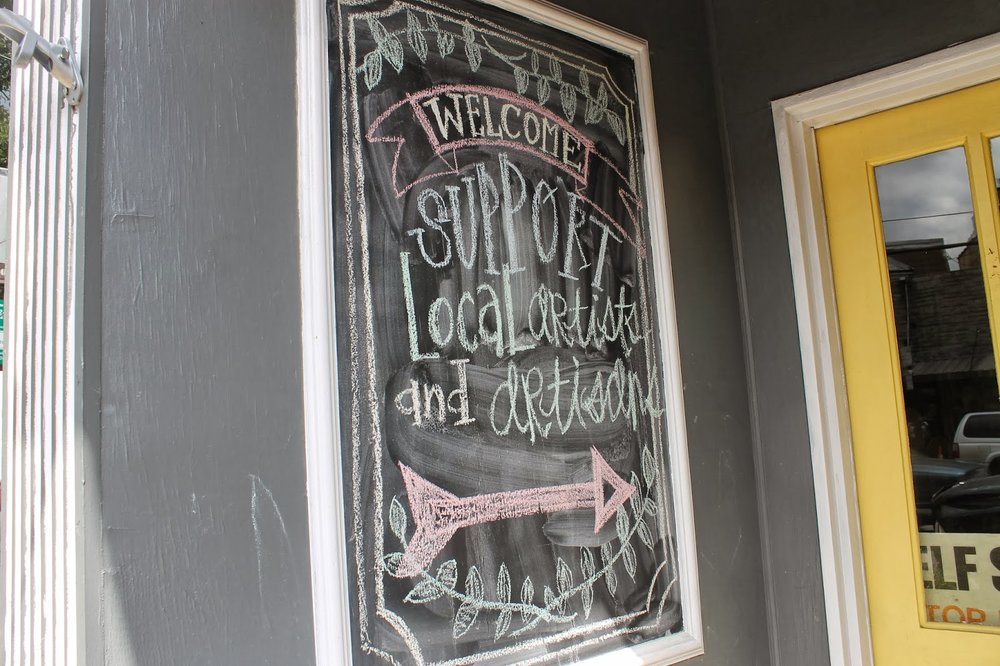 WELCOME
SUPPORT
Local artists
and artisans
ELF S
TOR